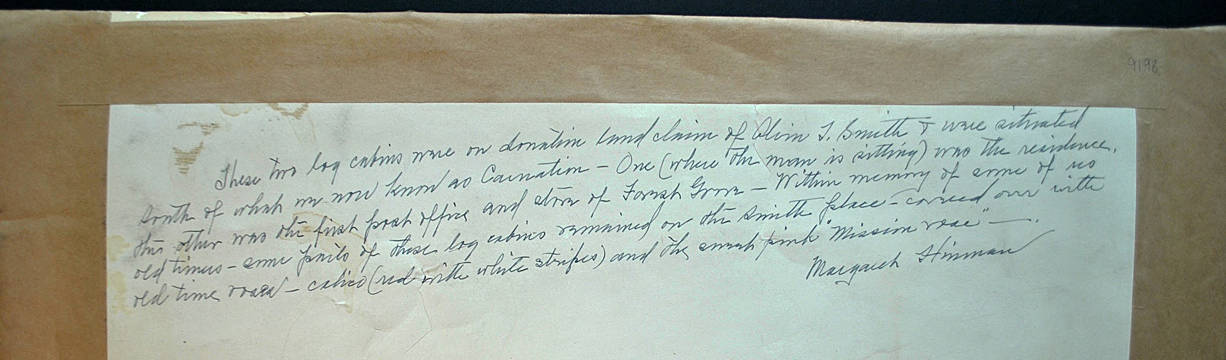 9198
These two log cabins were on donation land claim of Alvin T. Smith & were situated
south of what we now know as Carnation – One (where the man is sitting) was the residence,
the other was the first post office and store of Forest Grove – Within memory of some of us
old timers – some parts of these log cabins remained on the Smith place – covered over with
old time roses – calico (red with white stripes) and the small pink "Mission rose" –.
Margaret Hinman